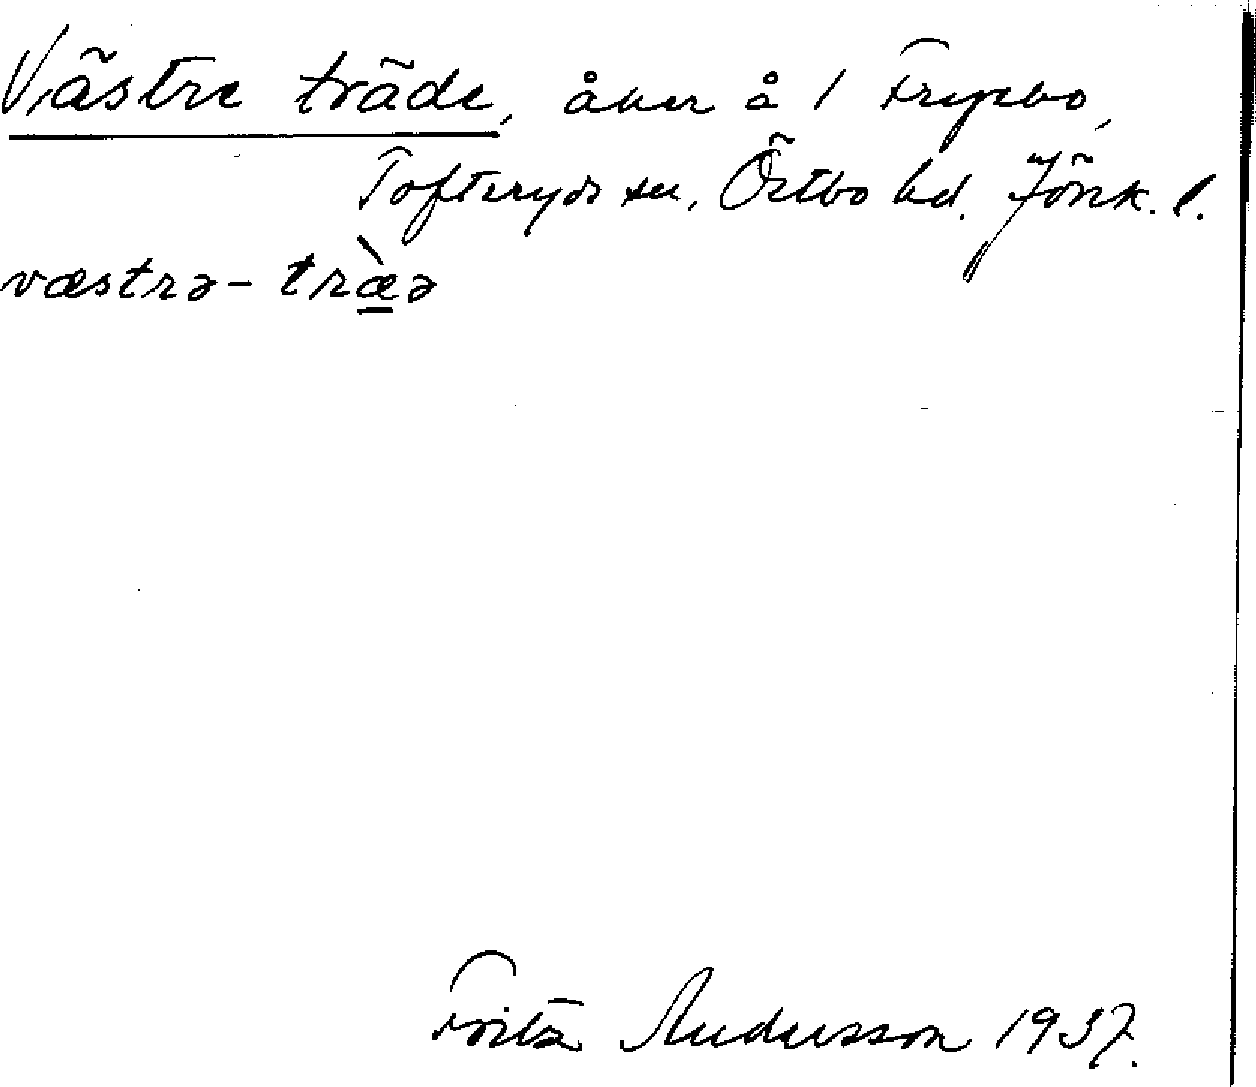 Västre träde, åker å 1 Frypbo,
Tofteryds sn, Östbo hd. Jönk. l.
væstrə - træ̀ə
Fritz Andersson 1937.